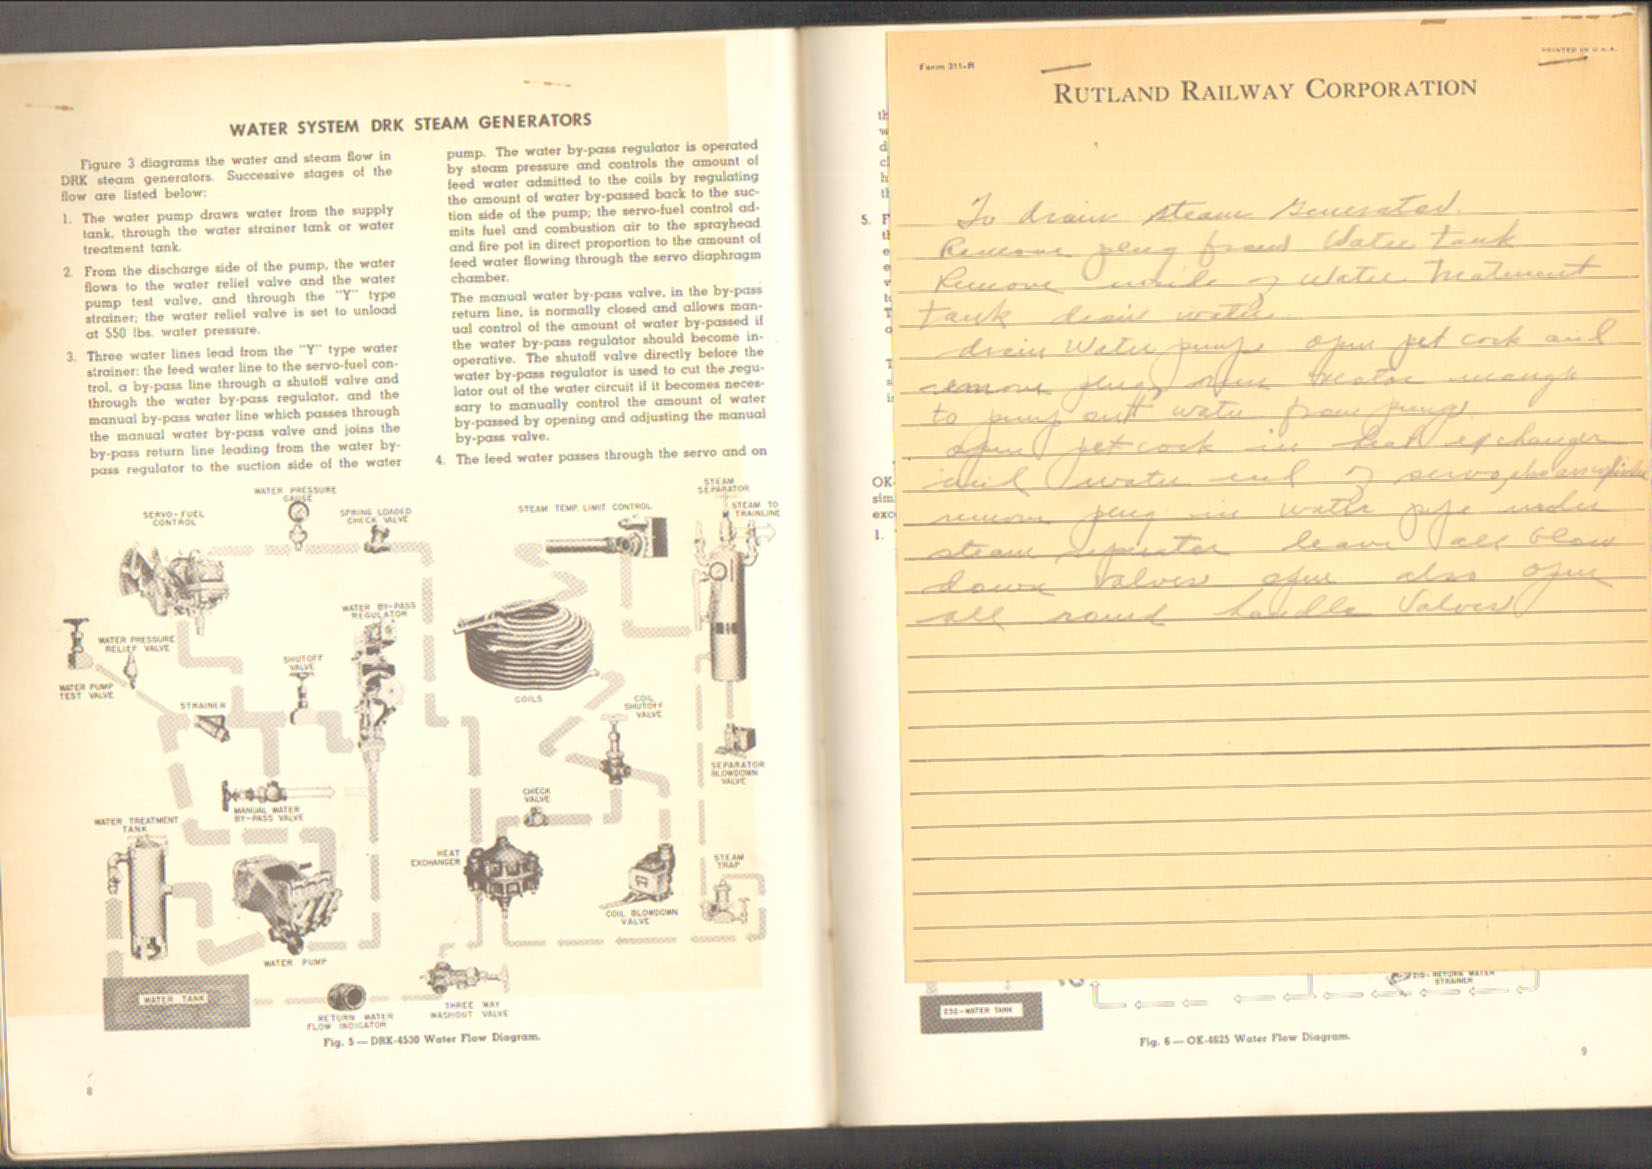 WATER SYSTEM DRK STEAM GENERATORS
Figure 3 diagrams the water and steam flow in
DRK steam generators. Successive stages of the
flow are listed below:
1. The water pump draws water from the supply
tank, through the water strainer tank or water
treatment tank.
2. From the discharge side of the pump, the water
flows to the water relief valve and the water
pump test valve, and through the "Y" type
strainer; the water relief valve is set to unload
at 550 lbs. water pressure.
3. Three water lines lead from the "Y" type water
strainer: the feed water line to the servo-fuel con-
trol, a by-pass line through a shutoff valve and
through the water by-pass regulator, and the
manual by-pass water line which passes through
the manual water by-pass valve and joins the
by-pass return line leading from the water by-
pass regulator to the suction side of the water
pump. The water by-pass regulator is operated
by steam pressure and controls the amount of
feed water admitted to the coils by regulating
the amount of water by-passed back to the suc-
tion side of the pump; the servo-fuel control ad-
mits fuel and combustion air to the sprayhead
and fire pot in direct proportion to the amount of
feed water flowing through the servo diaphragm
chamber.
The manual water by-pass valve, in the by-pass
return line, is normally closed and allows man-
ual control of the amount of water by-passed if
the water by-pass regulator should become in-
operative. The shutoff valve directly before the
water by-pass regulator is used to cut the regu-
lator out of the water circuit if it becomes neces-
sary to manually control the amount of water
by-passed by opening and adjusting the manual
by-pass valve.
4. The feed water passes through the servo and on
SERVO-FUEL
CONTROL
WATER PRESSURE
GAUGE
SPRING LOADED
CHECK VALVE
STEAM TEMP. LIMIT CONTROL
STEAM
SEPARATOR
STEAM TO
TRAINLINE
WATER BY-PASS
REGULATOR
WATER PRESSURE
RELIEF VALVE
WATER PUMP
TEST VALVE
SHUTOFF
VALVE
STRAINER
COILS
COIL
SHUTOFF
VALVE
SEPARATOR
BLOWDOWN
VALVE
MANUAL WATER
BY-PASS VALVE
CHECK
VALVE
WATER TREATMENT
TANK
HEAT
EXCHANGER
STEAM
TRAP
COIL BLOWDOWN
VALVE
WATER PUMP
WATER TANK
RETURN WATER
FLOW INDICATOR
THREE WAY
WASHOUT VALVE
Fig. 5 — DRK-4530 Water Flow Diagram.
8
Form 311-R
PRINTED IN U.S.A.
RUTLAND RAILWAY CORPORATION
To drain steam generator.
Remove plug from Water tank
Remove of Water Treatment
tank drain water.
drain Water pump open pet cock and
remove plugs run motor enough
to pump out water from pump.
open pet cock in heat exchanger
and water end of servo, also
remove plug in water pipe under
steam separator leave all blow
down valves open also open
all round handle Valves
5. F
OK-
sim
exc
1.
232-WATER TANK
RETURN WATER
STRAINER
Fig. 6 — OK-4625 Water Flow Diagram.
9